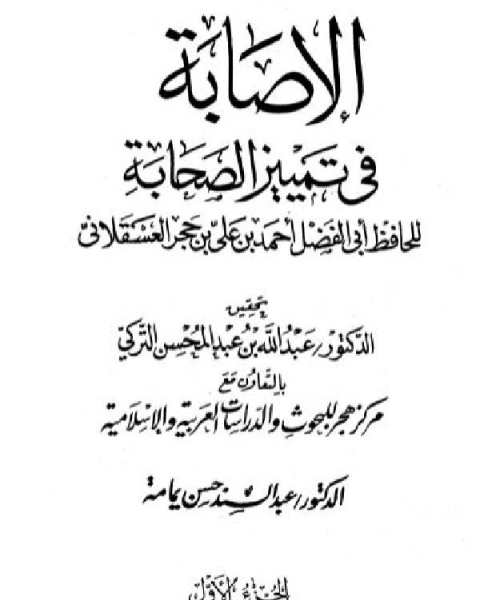 الإصابة
في تمييز الصحابة
للحافظ أبي الفضل أحمد بن علي بن حجر العسقلاني
تحقيق
الدكتور/ عبد الله بن عبد المحسن التركي
بالتعاون مع
مركز هجر للبحوث والدراسات العربية والإسلامية
الدكتور/ عبد السند حسن يمامة
الجزء الأول